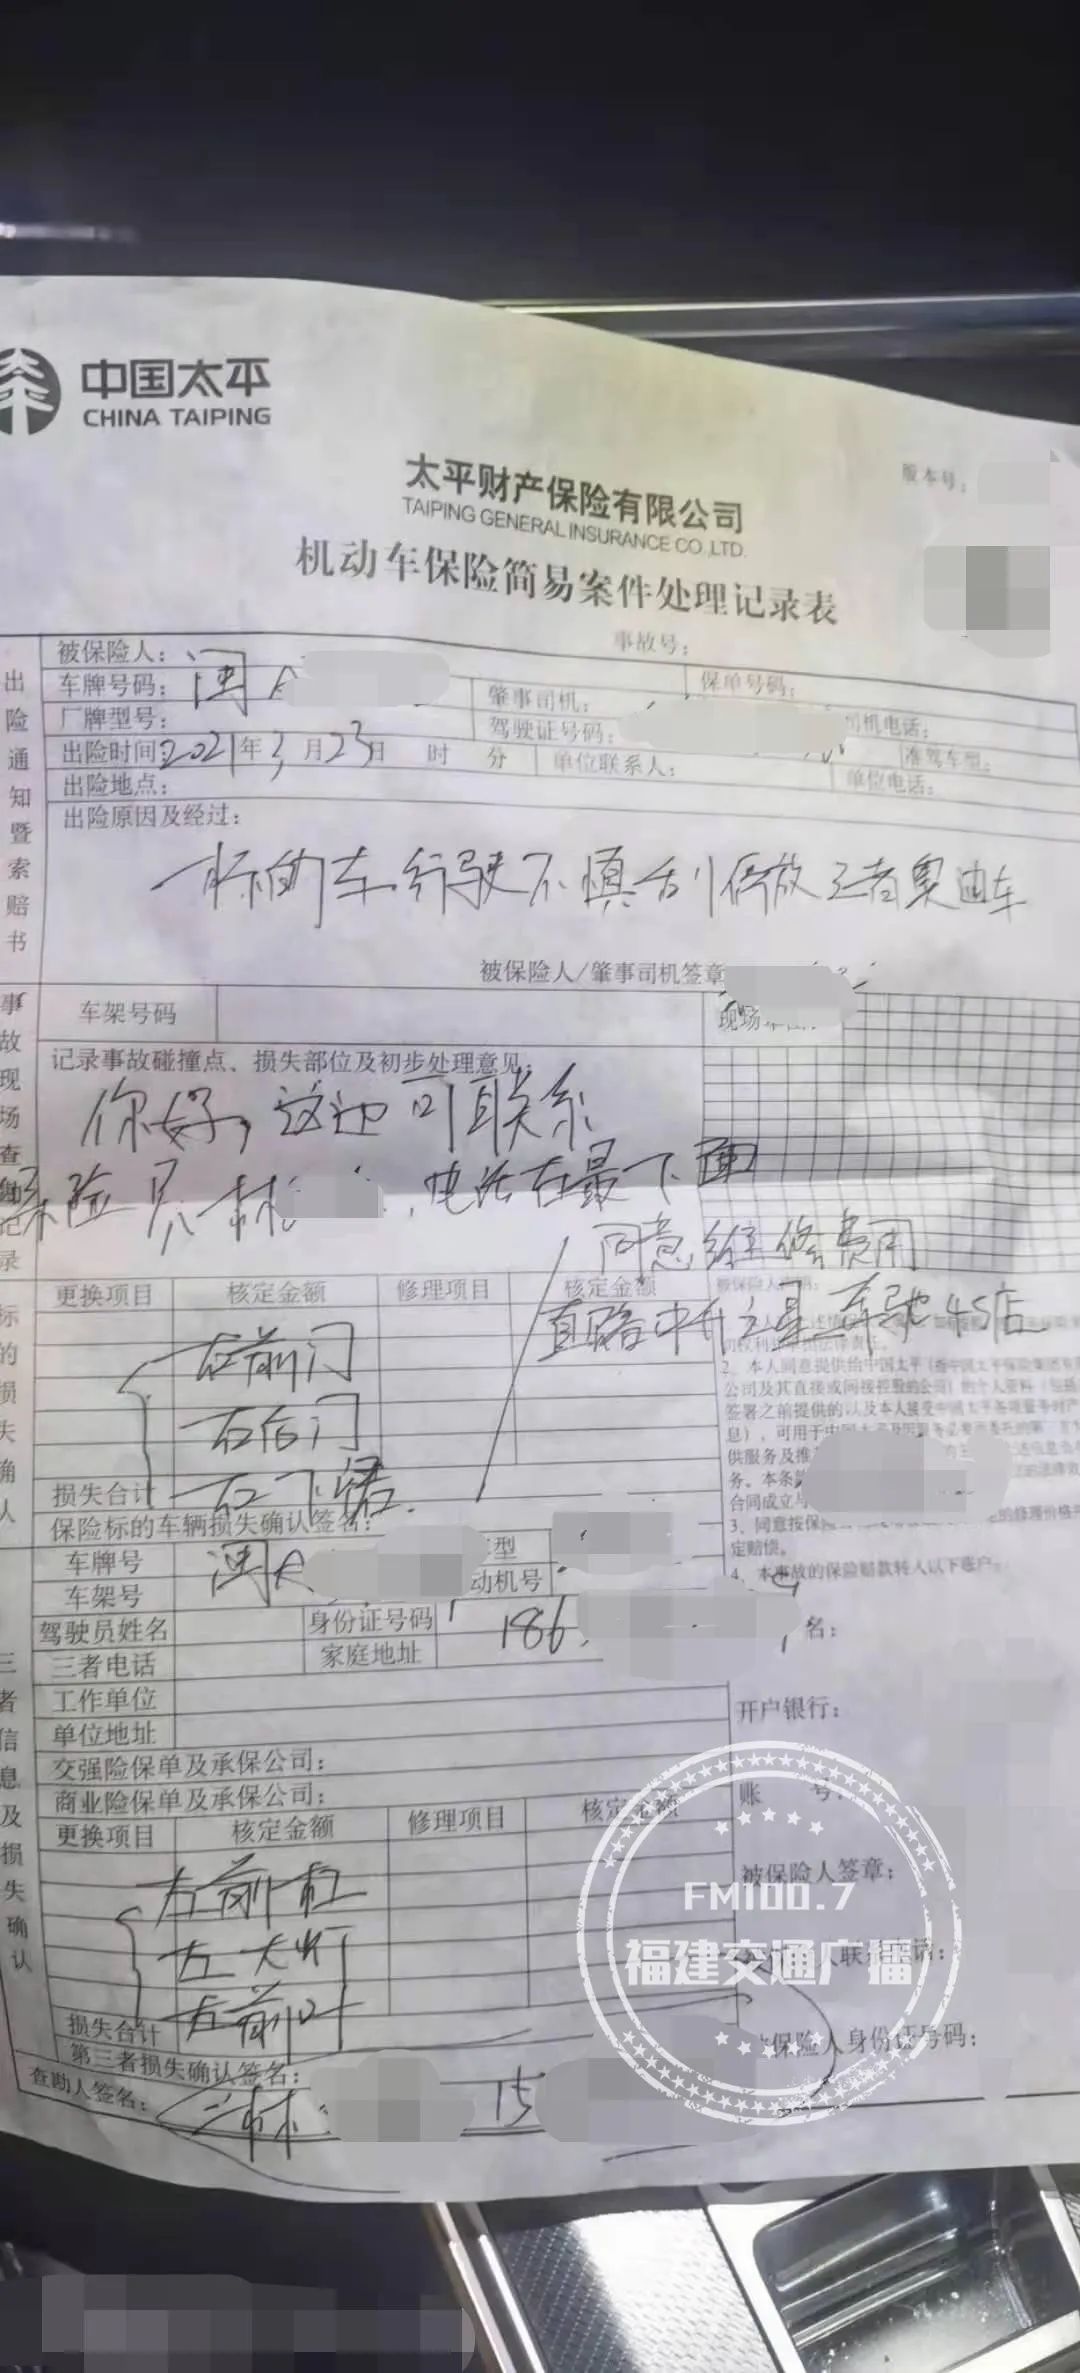 中国太平
CHINA TAIPING
版本号:
太平财产保险有限公司
TAIPING GENERAL INSURANCE CO.,LTD.
机动车保险简易案件处理记录表
事故号:
出险通知暨索赔书
被保险人:
保单号码:
车牌号码: 闽A
肇事司机:
司机电话:
厂牌型号:
驾驶证号码:
准驾车型:
出险时间: 2021年3月23日 时 分
单位联系人:
单位电话:
出险地点:
出险原因及经过:
标的车行驶不慎刮停放三者奥迪车
被保险人/肇事司机签章
事故现场查勘记录
车架号码
现场草图:
记录事故碰撞点、损失部位及初步处理意见:
你好,这边可联系
保险员林 ,电话在最下面
同意维修费用
直赔中升之星奔驰4S店
标的损失确认
更换项目 核定金额 修理项目 核定金额
右前门
右后门
右下裙
损失合计
保险标的车辆损失确认签名:
2、本人同意提供给中国太平
公司及其直接或间接控股的公司)的个人资料
签署之前提供的以及本人接受中国太平
供服务及推
务。本条
合同成立
3、同意按保 的修理价格
定赔偿。
4、本事故的保险赔款转入以下账户:
三者信息及损失确认
车牌号 闽A 型
车架号 动机号
驾驶员姓名 身份证号码 186
三者电话 家庭地址
名:
工作单位
单位地址
开户银行:
交强险保单及承保公司:
商业险保单及承保公司:
账 号:
更换项目 核定金额 修理项目 核定金额
左前杠
左大灯
左前叶
被保险人签章:
人联系电话:
保险人身份证号码:
损失合计
第三者损失确认签名:
查勘人签名: 林 15
FM100.7
福建交通广播